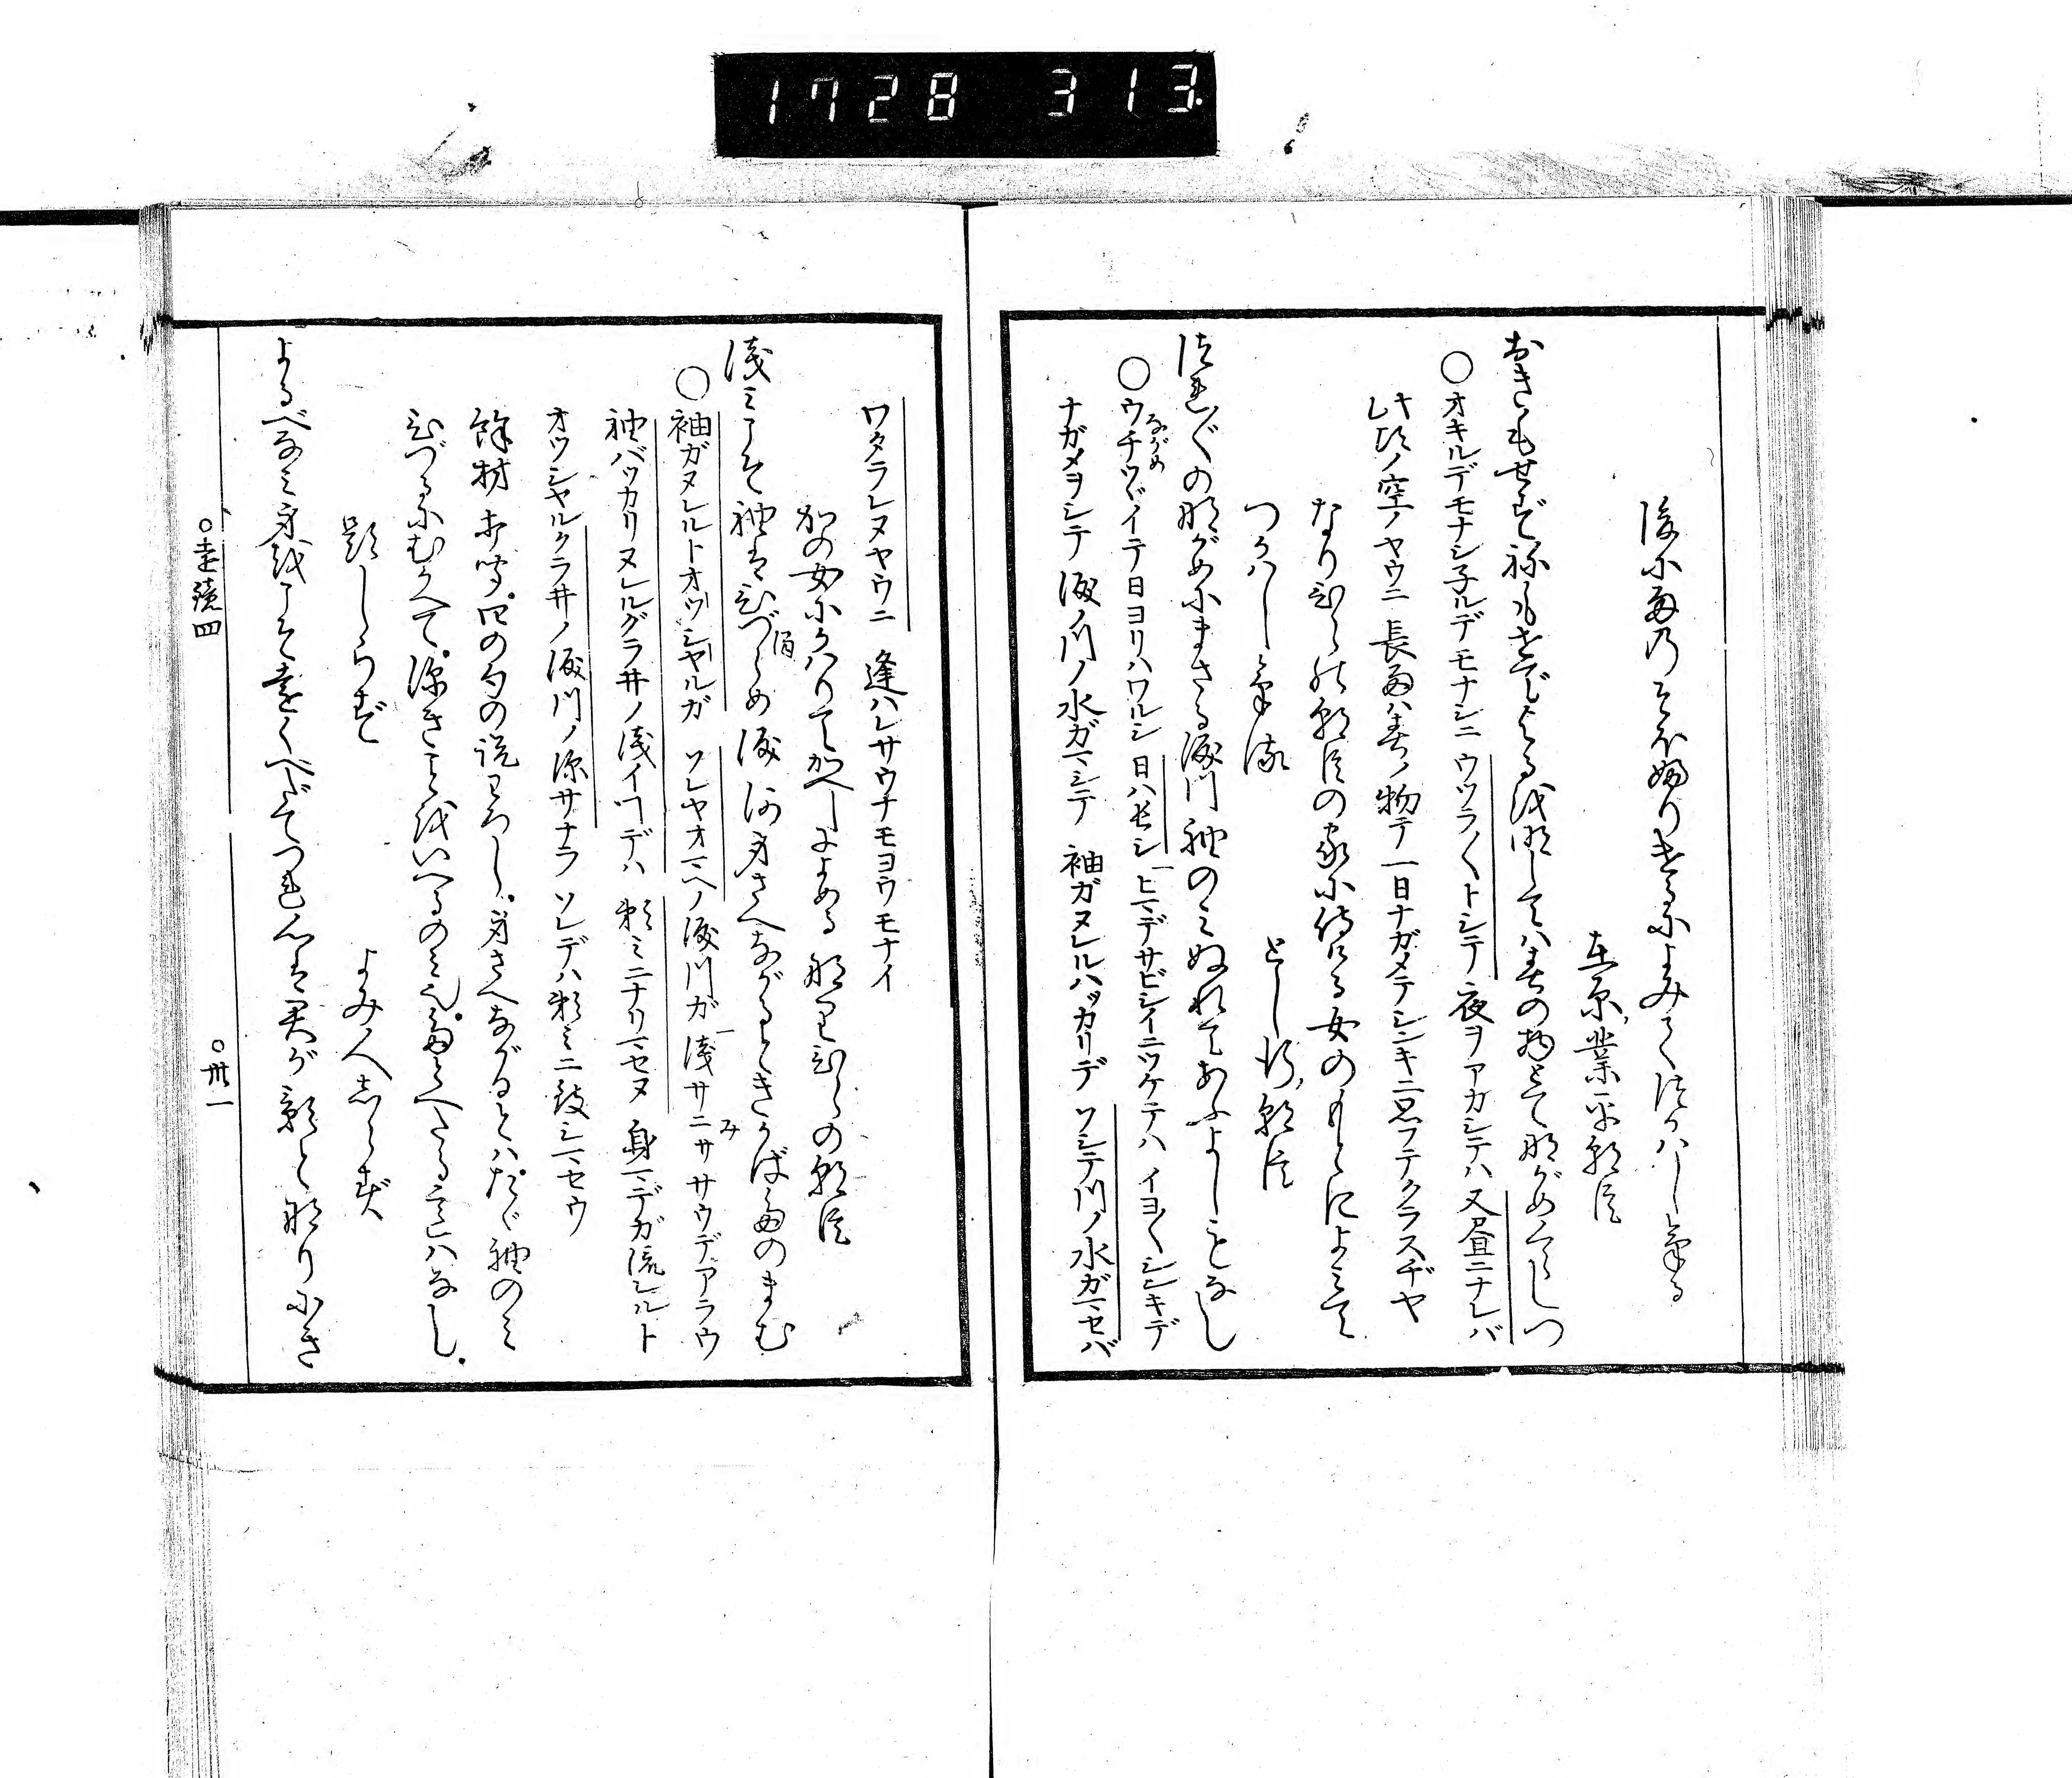 1728 313.
後に雨のそぼふりけるによみてつかはしける
在原業平朝臣
おきもせずねもせでよるを明しては春の物とて眺めくらしつ
○オキルデモナシ子ルデモナシニ ウツラ〳〵トシテ 夜ヲアカシテハ 又昼ニナレバ
此ゴロノ空ノヤウニ 長雨ハ春ノ物テ一日ナガメテシンキニ思フテクラスヂヤ
なりひらの朝臣の家に侍ける女のもとによみて
つかはしける
としゆき朝臣
つれ〴〵の眺めにまさる涙川袖のみぬれてあふよしもなし
○ウチツヾイテ日ヨリハワルシ 日ハ長シ ヒマデサビシイニツケテハ イヨ〳〵シンキデ
ながめ
ナガメヲシテ 涙ノ川ノ水ガマシテ 袖ガヌレルバッカリデ ソシテ川ノ水ガマセバ
ワタラレヌヤウニ 逢ハレサウナモヨウモナイ
かの女にかはりてかへしによめる なりひらの朝臣
浅みこそ袖はひづらめ涙河身さへながるときかばたのまむ
○袖ガヌルルトオッシヤルガ ソレヤオマヘノ涙川ガ 浅サニサ サウデアラウ
み
袖バッカリヌレルグラ井ノ浅イコトデハ 頼ミニナリマセヌ 身マデガ流レルト
オッシヤルクラ井ノ涙川ノ深サナラ ソレデハ頼ミニ致シマセウ
餘材打聞四の句の説わろし。身さへながるとはただ袖のみ
ひづるにむかへて。深きことをいへるのみ也。
題しらず
よみ人しらず
よるべなみ身をこそ遠くへだてつれ心は君が影と成りにき
○遠鏡四
○卅一